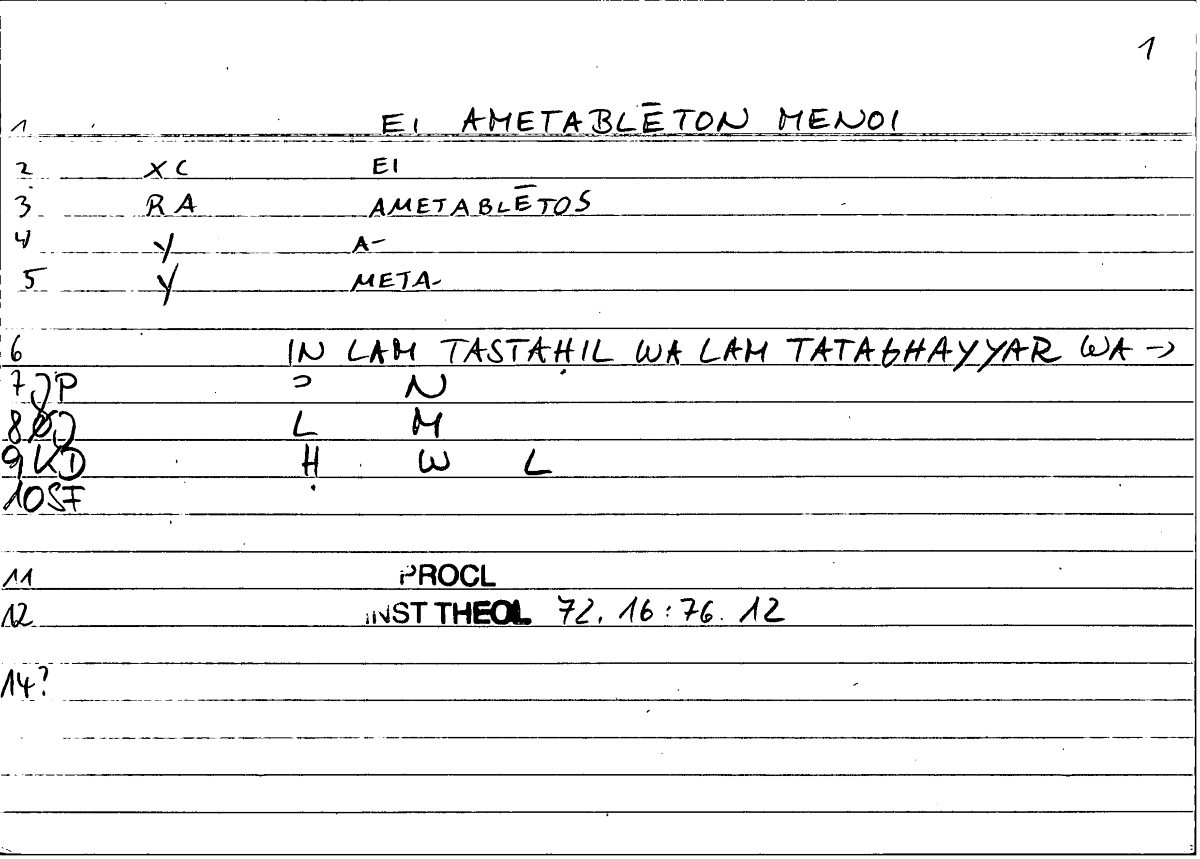 1
1 EI AMETABLĒTON MENOI
2 XC EI
3 RA AMETABLĒTOS
4 Y A-
5 Y META-
6 IN LAM TASTAḤIL WA LAM TATAGHAYYAR WA →
7 JP ʾ N
8 J L M
9 KD Ḥ W L
10 SF
11 PROCL
12 INST THEOL 72. 16 : 76. 12
14?